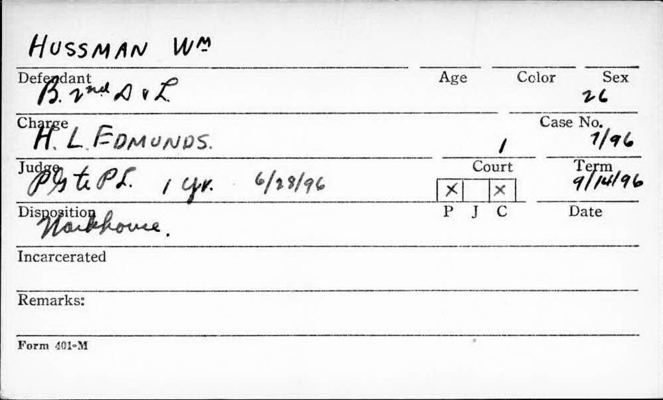 HUSSMAN Wm
Defendant Age Color Sex
B. 2nd D & L 26
Charge Case No.
H. L. EDMUNDS. 1 7/96
Judge Court Term
Plg to P L. 1 yr. 6/28/96 X X 9/14/96
Disposition P J C Date
Workhouse.
Incarcerated
Remarks:
Form 401-M